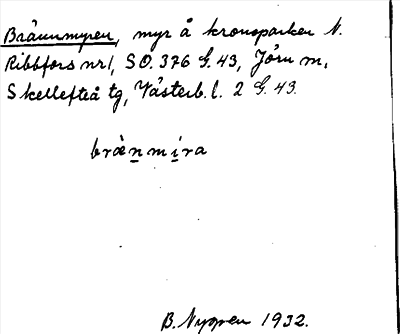 Brännmyren, myr å kronoparken N.
Ribbfors nr 1, SO. 376 G. 43, Jörn sn,
Skellefteå tg, Västerb. l. 2 G. 43.
brænmira
B. Nyppen 1932.